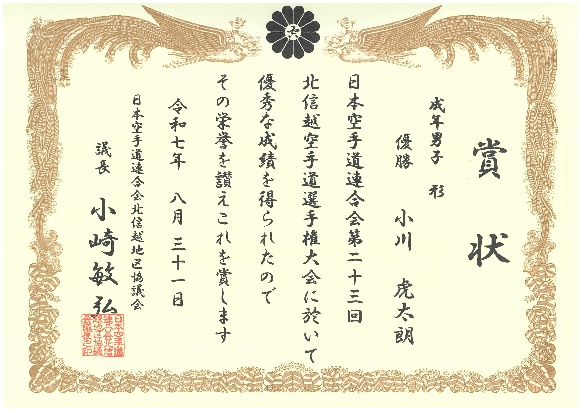 賞状
成年男子 形
優勝 小川 虎太朗
日本空手道連合会第二十三回
北信越空手道選手権大会に於いて
優秀な成績を得られたので
その栄誉を讃えこれを賞します
令和七年 八月 三十一日
日本空手道連合会北信越地区協議会
議長 小崎敏弘